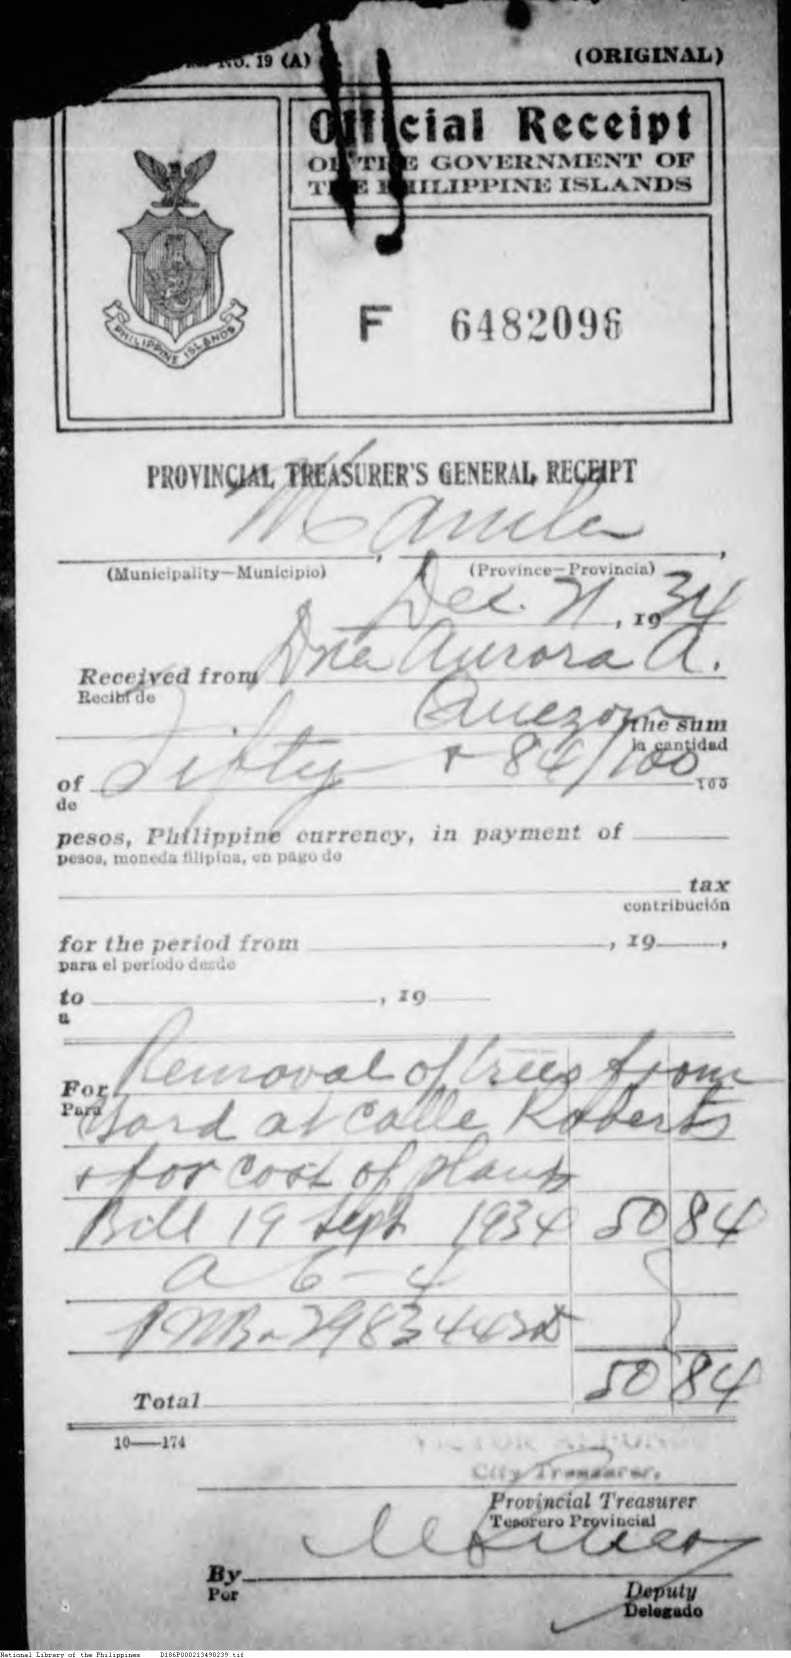 No. 19 (A)
(ORIGINAL)
Official Receipt
OF THE GOVERNMENT OF
THE PHILIPPINE ISLANDS
PHILIPPINE ISLANDS
F 6482096
PROVINCIAL TREASURER'S GENERAL RECEIPT
Manila
(Municipality—Municipio) , (Province—Provincia) ,
Dec. 21, 1934
Received from Dna Aurora A.
Recibí de
Quezon the sum
la cantidad
of Fifty + 84/100
de
100
pesos, Philippine currency, in payment of
pesos, moneda filipina, en pago de
tax
contribución
for the period from , 19 ,
para el período desde
to , 19
a
For Removal of trees from
Para
Yard at Calle Roberts
+ for cost of plants
Bill 19 Sept 1934 50 84
a 6-4
PNB-298344
Total 50 84
10—174
City Treasurer.
Provincial Treasurer
Tesorero Provincial
By
Por
Deputy
Delegado
National Library of the Philippines D186P000213490239.tif